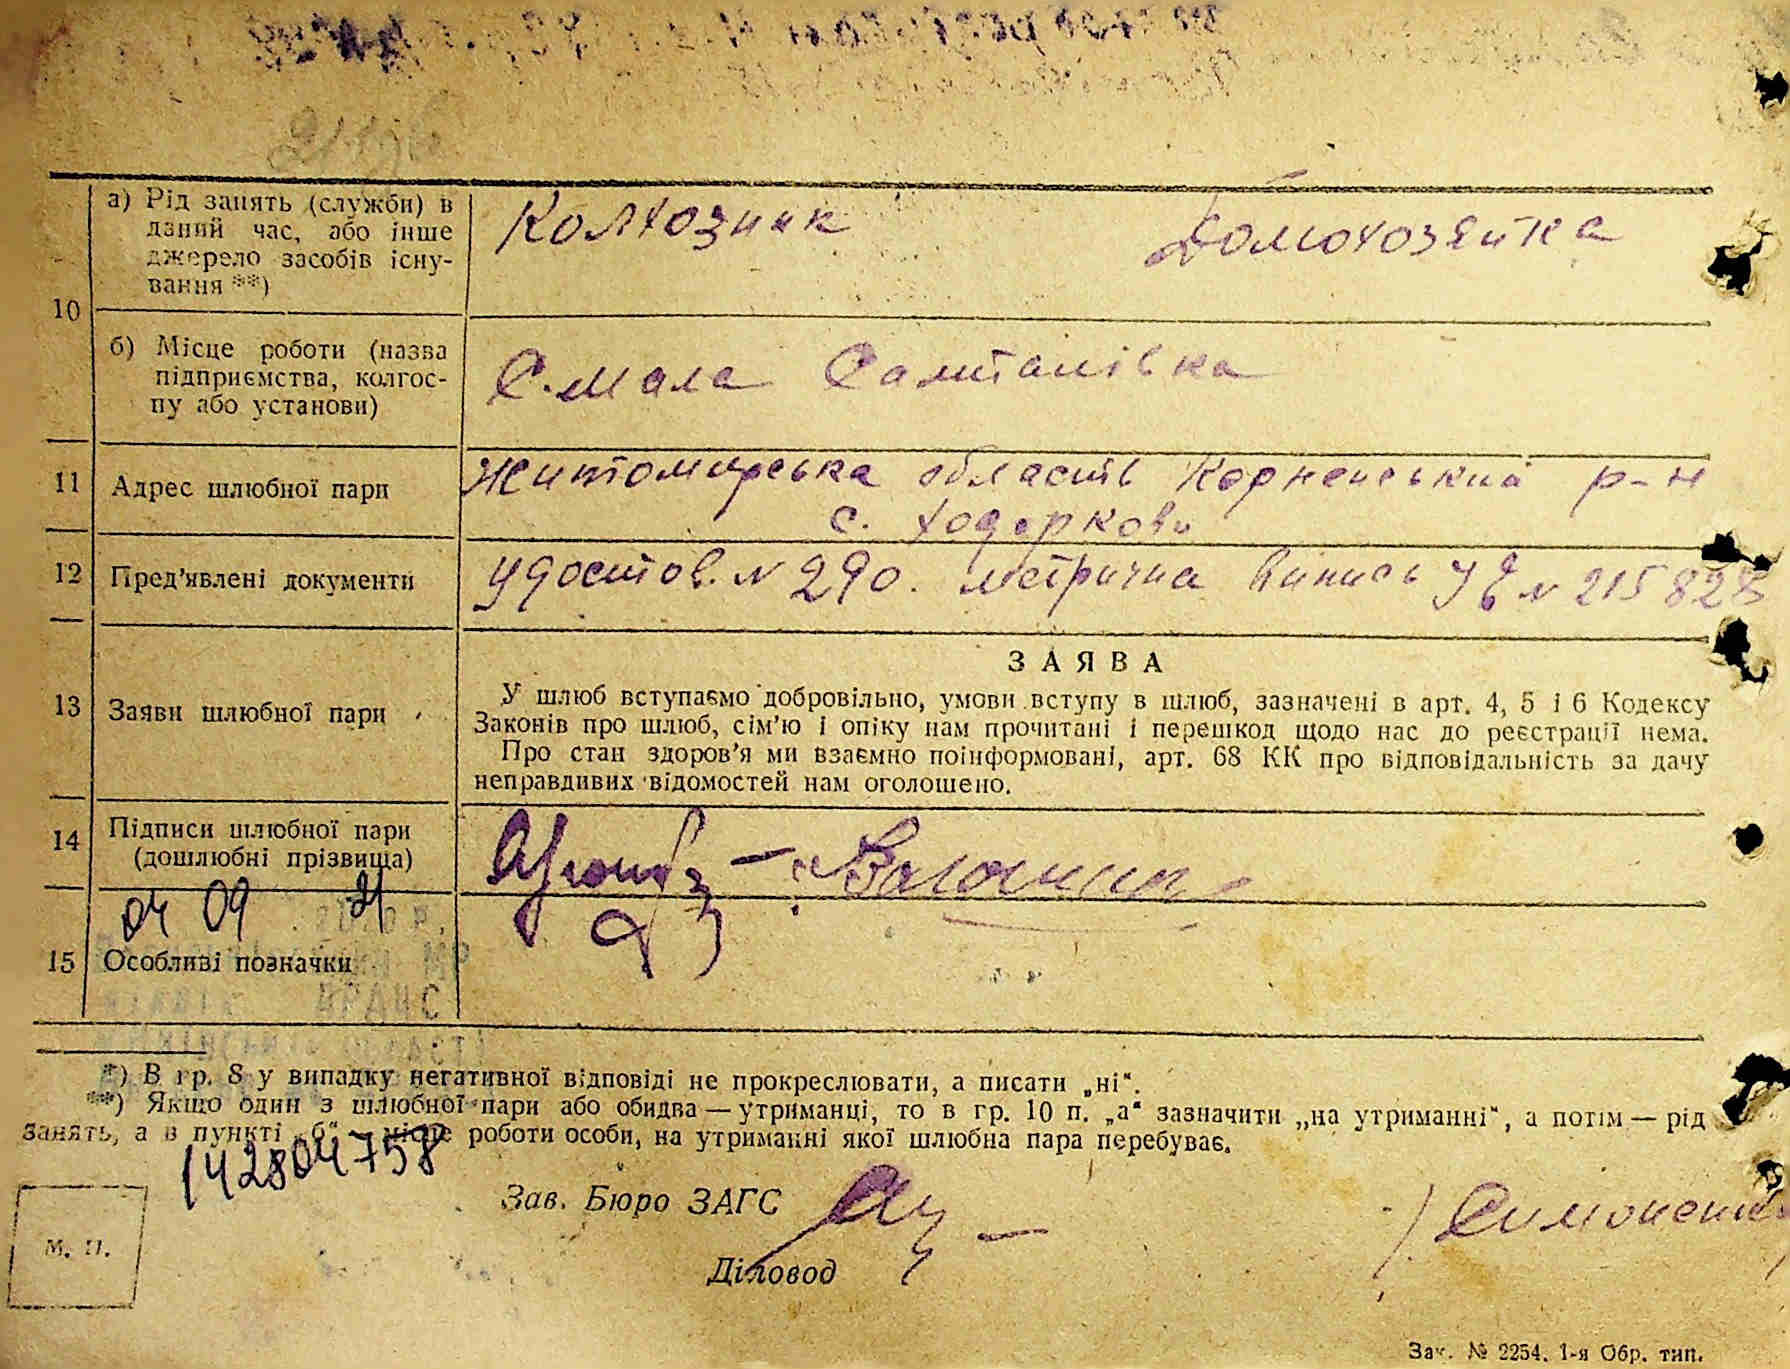 а) Рід занять (службы) в
даний час, або інше
джерело засобів існу-
вання **)
Колхозник Домохозяйка
10
б) Місце роботи (назва
підприємства, колгос-
пу або установи)
С. Мала
11 Адрес шлюбної пари
Житомирська область Корненський р-н
с. Ходорков
12 Пред'явлені документи
удостов. № 290. метрична випись № 215828
13 Заяви шлюбної пари
ЗАЯВА
У шлюб вступаємо добровільно, умови вступу в шлюб, зазначені в арт. 4, 5 і 6 Кодексу
Законів про шлюб, сім'ю і опіку нам прочитані і перешкод щодо нас до реєстрації нема.
Про стан здоров'я ми взаємно поінформовані, арт. 68 КК про відповідальність за дачу
неправдивих відомостей нам оголошено.
14 Підписи шлюбної пари
(дошлюбні прізвища)
04 09 21
15 Особливі позначки
*) В гр. 8 у випадку негативної відповіді не прокреслювати, а писати „ні“.
**) Якщо один з шлюбної пари або обидва — утриманці, то в гр. 10 п. „а“ зазначити „на утриманні“, а потім — рід
занять, а в пункті „б“ — місце роботи особи, на утриманні якої шлюбна пара перебуває.
142804758
Зав. Бюро ЗАГС
Діловод
М. П.
Зак. № 2254. 1-я Обр. тип.